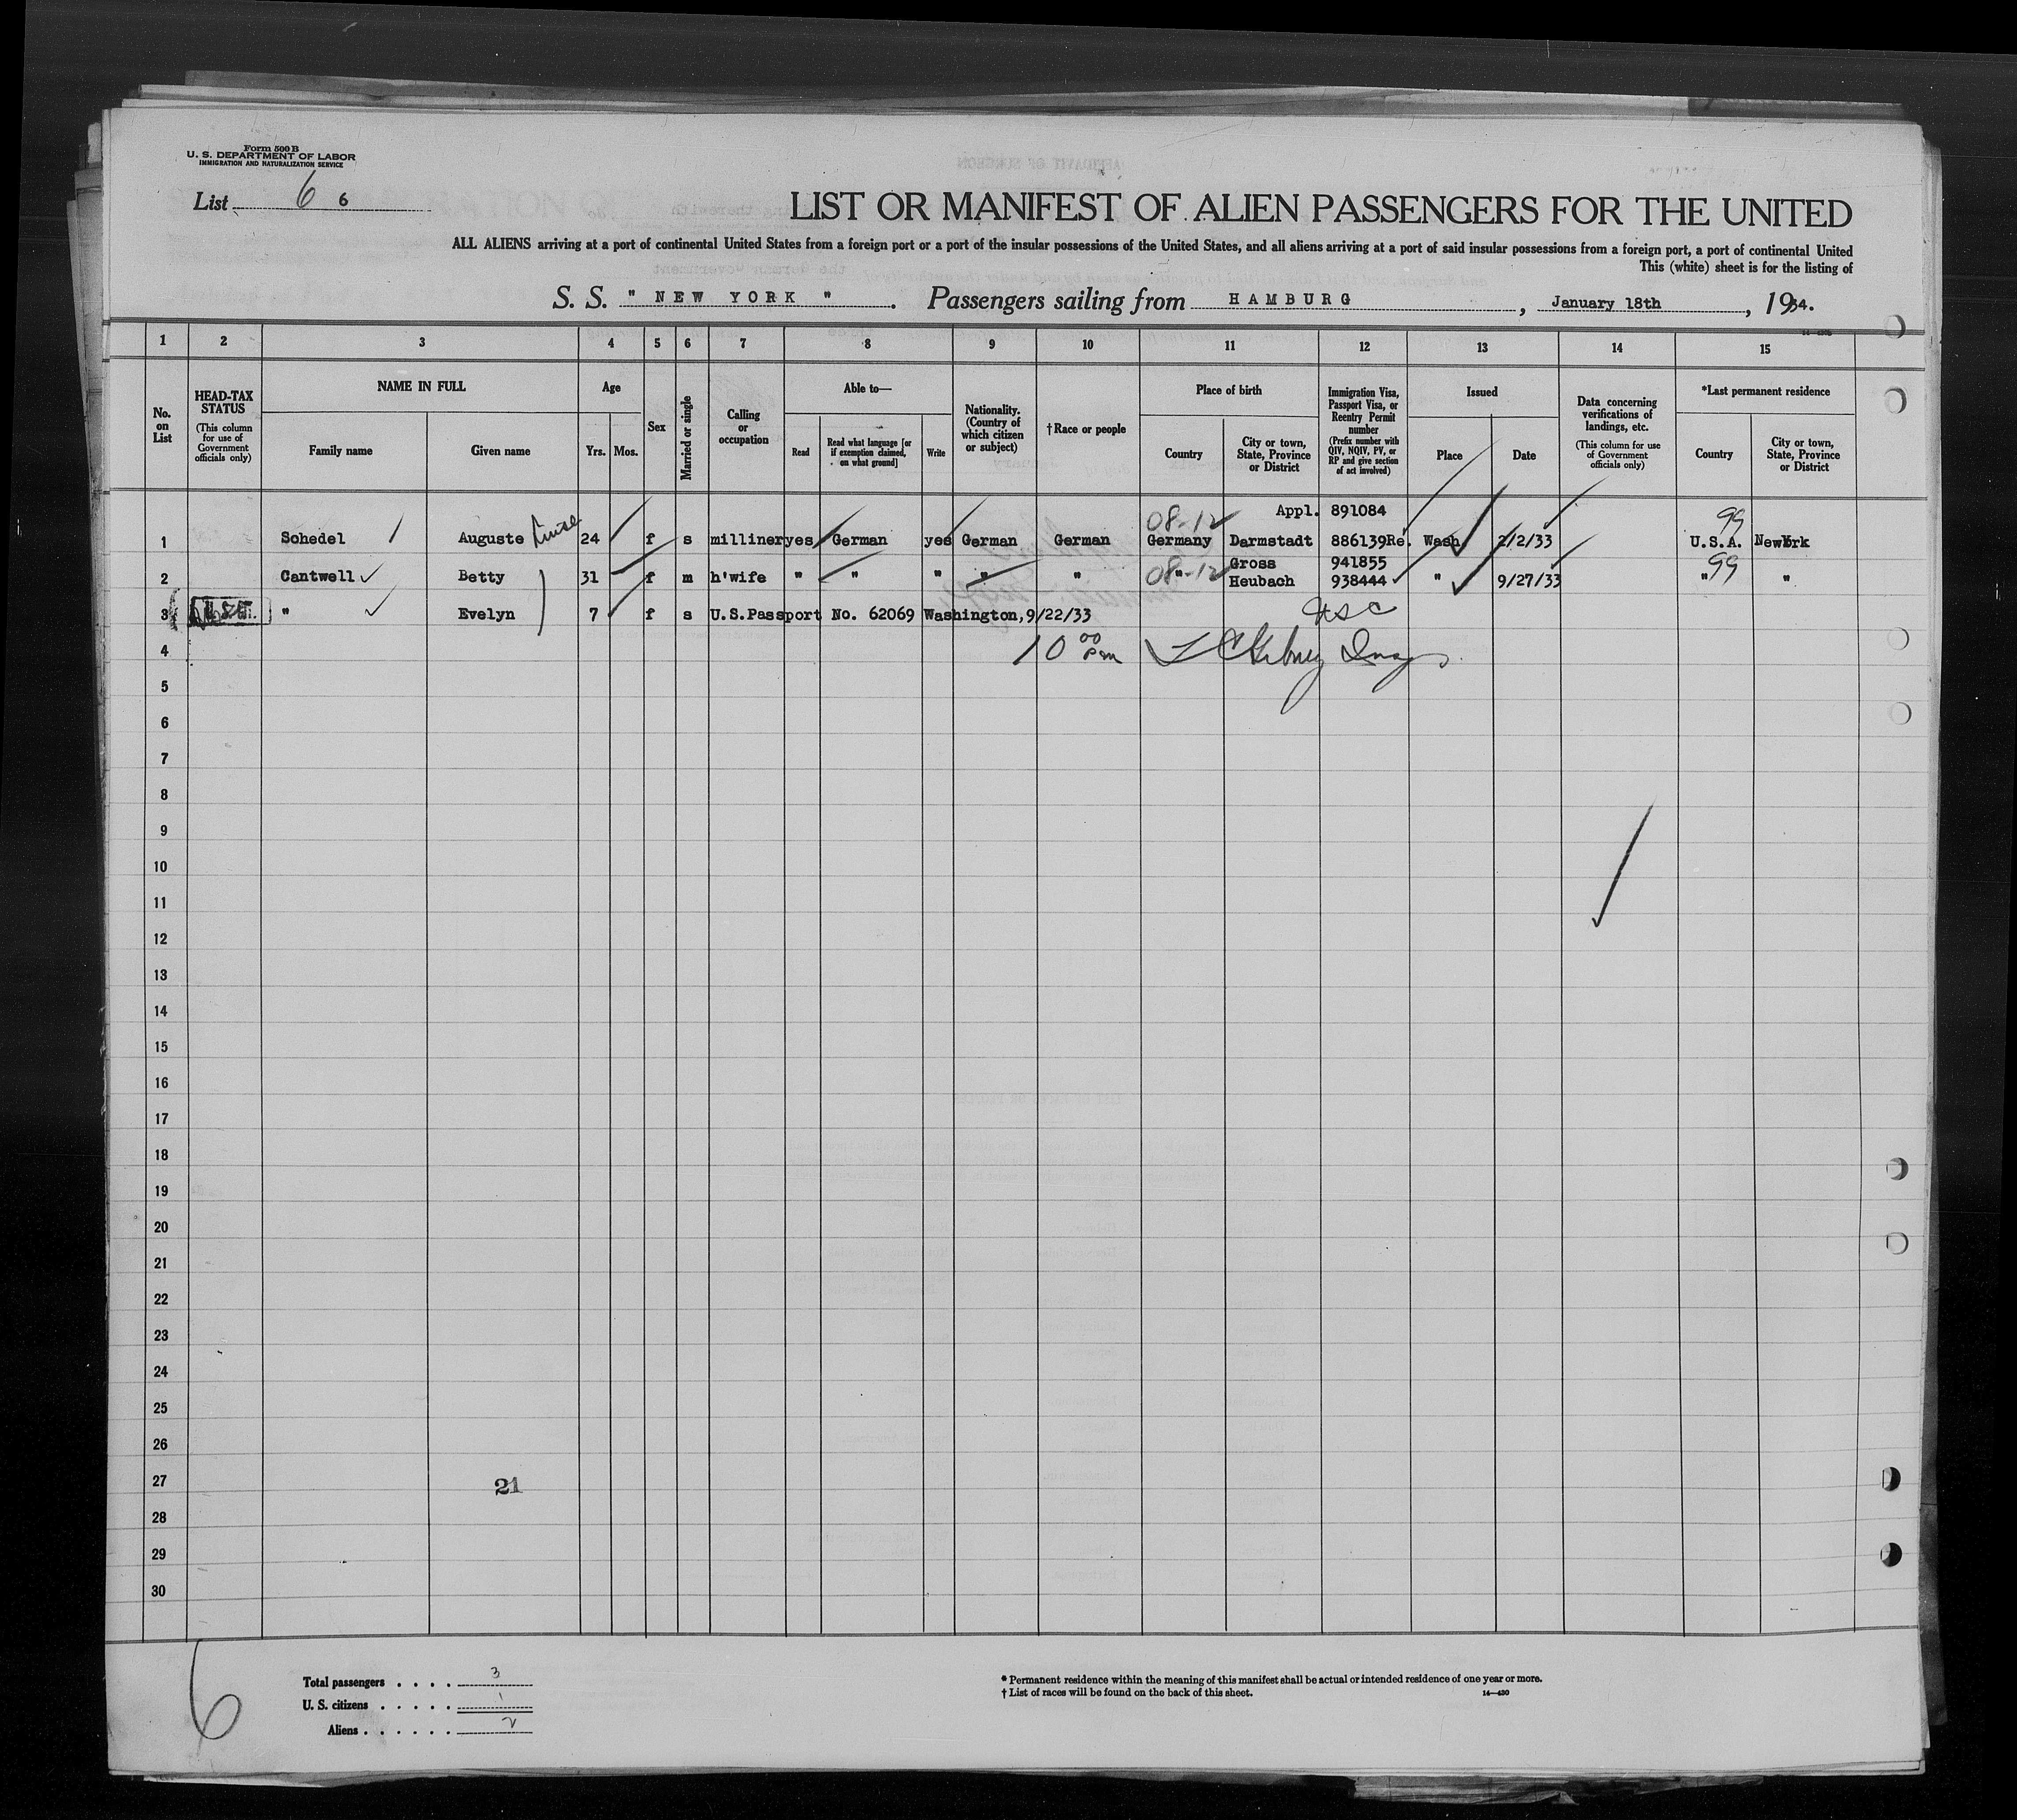 Form 500 B
U. S. DEPARTMENT OF LABOR
IMMIGRATION AND NATURALIZATION SERVICE
List 6 6
LIST OR MANIFEST OF ALIEN PASSENGERS FOR THE UNITED
ALL ALIENS arriving at a port of continental United States from a foreign port or a port of the insular possessions of the United States, and all aliens arriving at a port of said insular possessions from a foreign port, a port of continental United
This (white) sheet is for the listing of
S. S. " NEW YORK ". Passengers sailing from HAMBURG, January 18th, 1934.
1 2 3 4 5 6 7 8 9 10 11 12 13 14 15
No. on List
HEAD-TAX STATUS
(This column for use of Government officials only)
NAME IN FULL
Family name
Given name
Age
Yrs. Mos.
Sex
Married or single
Calling or occupation
Able to—
Read
Read what language [or if exemption claimed, on what ground]
Write
Nationality. (Country of which citizen or subject)
†Race or people
Place of birth
Country
City or town, State, Province or District
Immigration Visa, Passport Visa, or Reentry Permit number
(Prefix number with QIV, NQIV, PV, or RP and give section of act involved)
Issued
Place
Date
Data concerning verifications of landings, etc.
(This column for use of Government officials only)
*Last permanent residence
Country
City or town, State, Province or District
08-12 Appl. 891084 99
1 Schedel Auguste Luise 24 f s milliner yes German yes German German Germany Darmstadt 886139Re. Wash. 2/2/33 U.S.A. New York
Gross 941855
2 Cantwell Betty 31 f m h'wife " " " " " 08-12 " Heubach 938444 " 9/27/33 " 99 "
3 " Evelyn 7 f s U.S.Passport No. 62069 Washington,9/22/33 USC
4 10 00 pm
5
6
7
8
9
10
11
12
13
14
15
16
17
18
19
20
21
22
23
24
25
26
27 21
28
29
30
6
Total passengers . . . . 3
U. S. citizens . . . . . 1
Aliens . . . . . . 2
* Permanent residence within the meaning of this manifest shall be actual or intended residence of one year or more.
† List of races will be found on the back of this sheet. 14—430